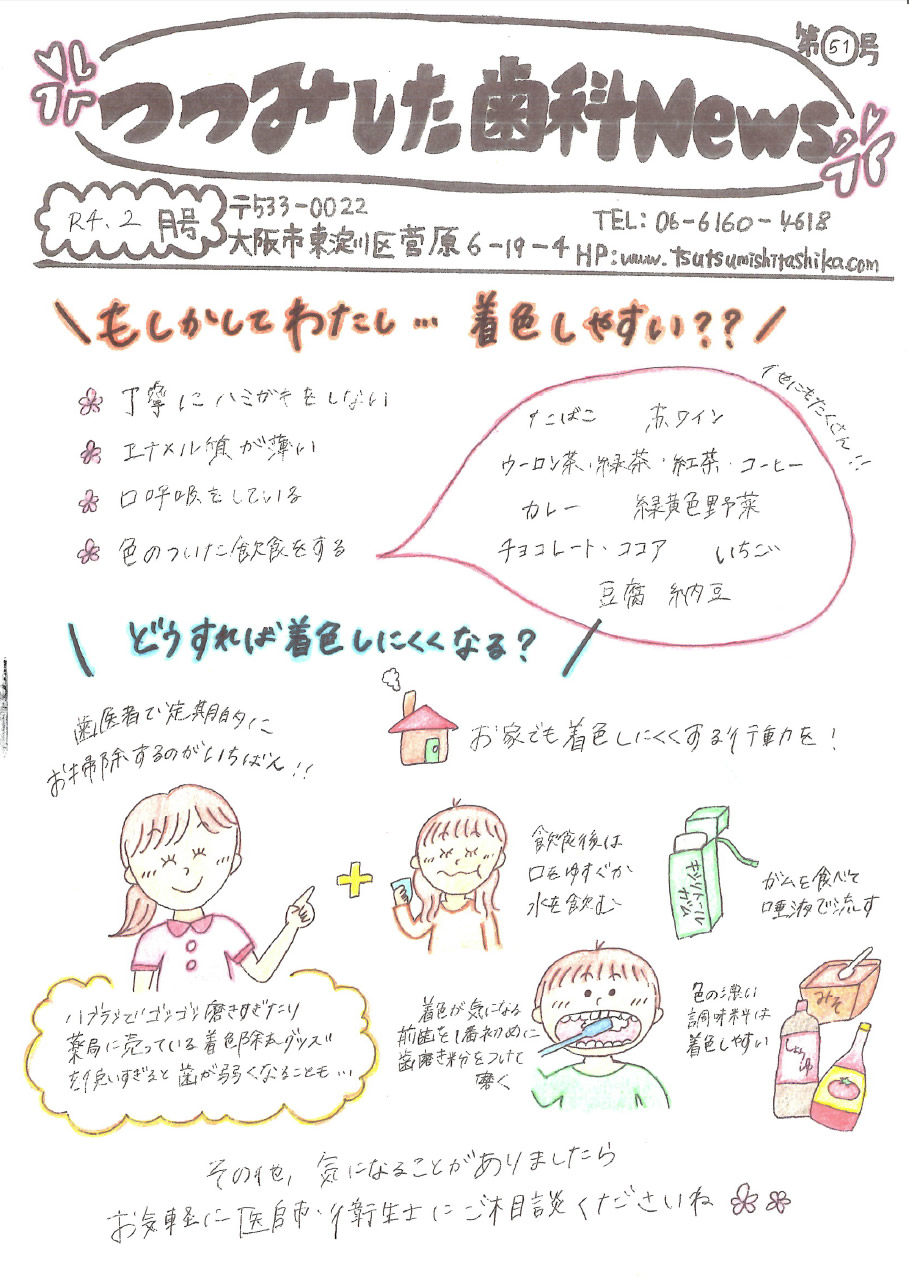 第51号
つつみした歯科News
R4.2月号
〒533-0022
大阪市東淀川区菅原6-19-4
TEL:06-6160-4618
HP:www.tsutsumishitashika.com
\もしかしてわたし… 着色しやすい??/
丁寧にハミガキをしない
エナメル質が薄い
口呼吸をしている
色のついた飲食をする
他にもたくさん!!
たばこ 赤ワイン
ウーロン茶・緑茶・紅茶・コーヒー
カレー 緑黄色野菜
チョコレート・ココア いちご
豆腐 納豆
\どうすれば着色しにくくなる?/
歯医者で定期的に
お掃除するのがいちばん!!
お家でも着色しにくくする行動を!
+
飲食後は
口をゆすぐか
水を飲む
キシリトール
ガム
ガムを食べて
唾液で流す
ハブラシでゴシゴシ磨きすぎたり
薬局に売っている着色除去グッズ
を使いすぎると歯が弱くなることも…
着色が気になる
前歯を1番初めに
歯磨き粉をつけて
磨く
色の濃い
調味料は
着色しやすい
みそ
しょうゆ
その他,気になることがありましたら
お気軽に医師・衛生士にご相談くださいね